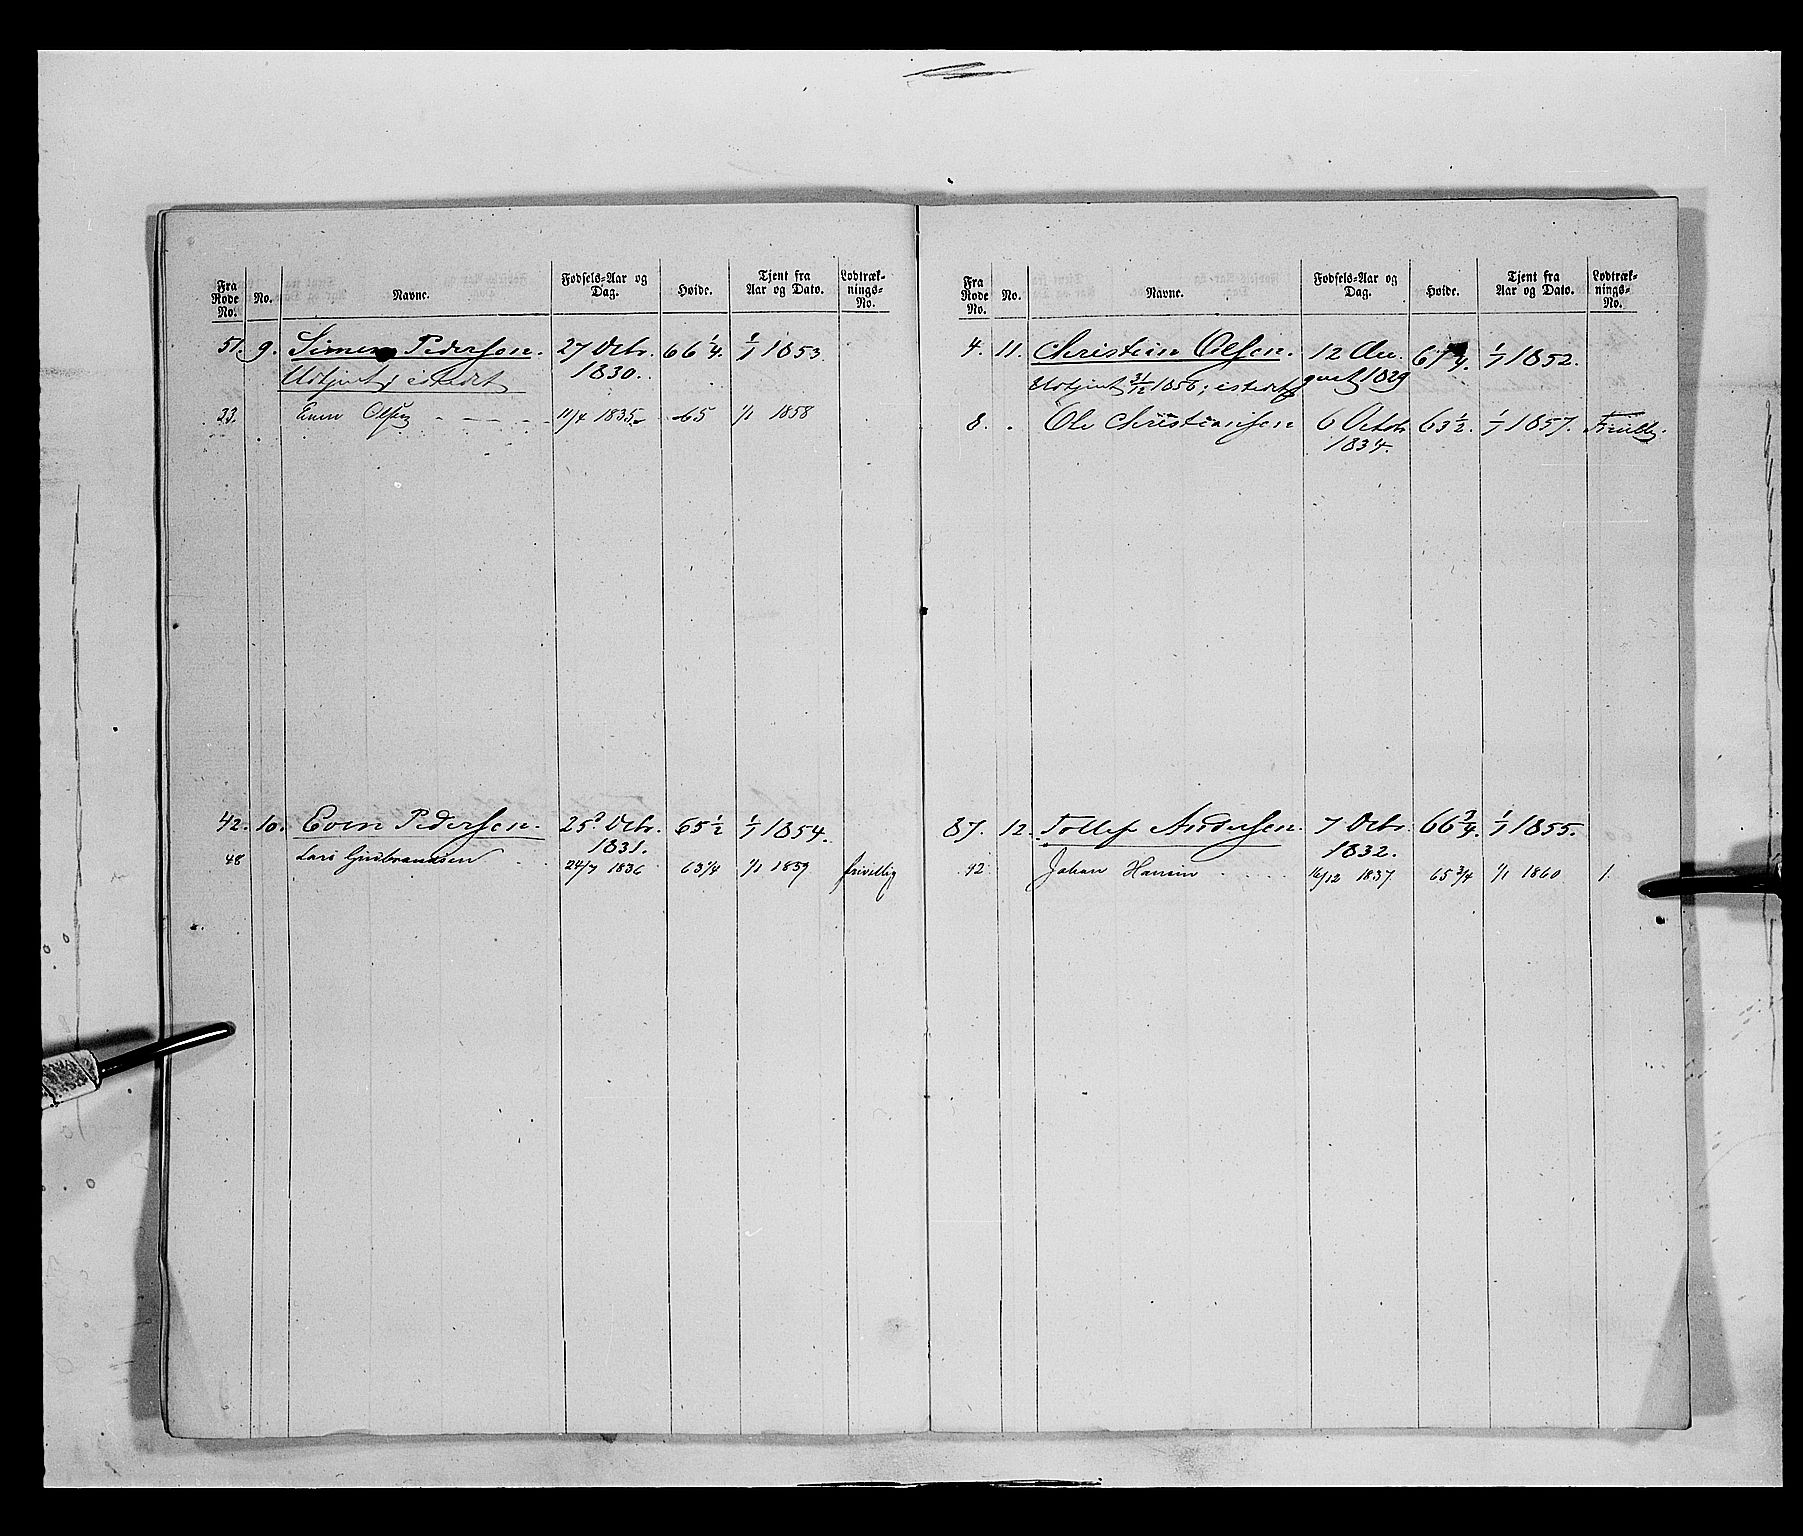 Fra Rode No. No. Navne. Fødsels-Aar og Dag. Høide. Tjent fra Aar og Dato. Lodtræk-nings-No.
51. 9. Simen Pedersen. 27 Octr. 66 1/4. 1/1 1853.
Udtjent; istedet 1830.
23. Even Olsen 11/4 1835. 65 1/1 1858
42. 10. Even Pedersen. 25 Octr. 65 1/2 1/1 1854.
1831.
48 Lars Gudbrandsen 24/7 1836 63 1/4 1/1 1859 frivillig
Fra Rode No. No. Navne. Fødsels-Aar og Dag. Høide. Tjent fra Aar og Dato. Lodtræk-nings-No.
4. 11. Christian Olsen. 12 Au- 1/1 1852.
Udtjent 31/12 1856; istedet gust 1829
8. Ole Christiansen 6 Octob 63 1/2. 1/1 1857. Frivillig.
1834.
87. 12. Tollef Andersen. 7 Octr. 66 3/4. 1/1 1855.
1832.
42 Johan Hansen 16/12 1837 65 3/4 1/1 1860 1.